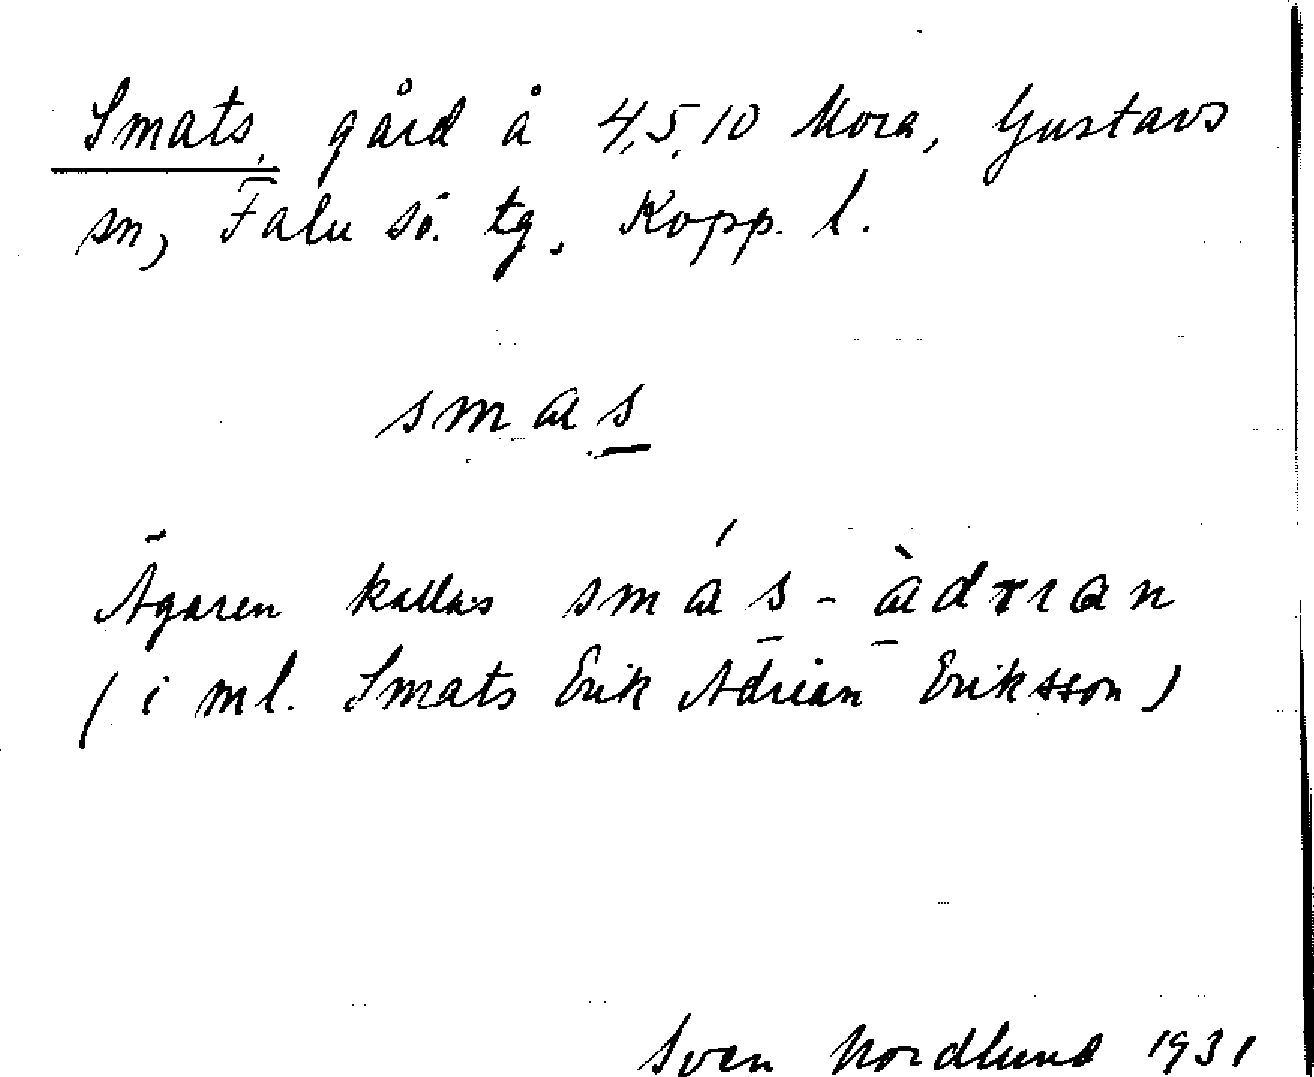 Smats, gård å 4, 5, 10 Mora, Gustavs
sn, Falu sö. tg. Kopp. l.
smas
Ägaren kallas smás-àdrian
(i ml. Smats Erik Adrian Eriksson)
Sven Nordlund 1931